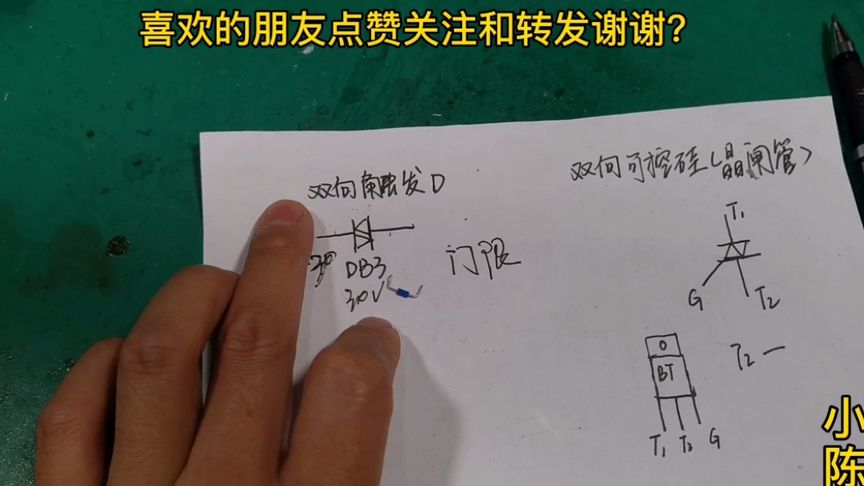 喜欢的朋友点赞关注和转发谢谢?
双向触发D
双向可控硅(晶闸管)
DB3
30V
门限
T1
G
T2
O
BT
T2 一
T1 T2 G
小陈